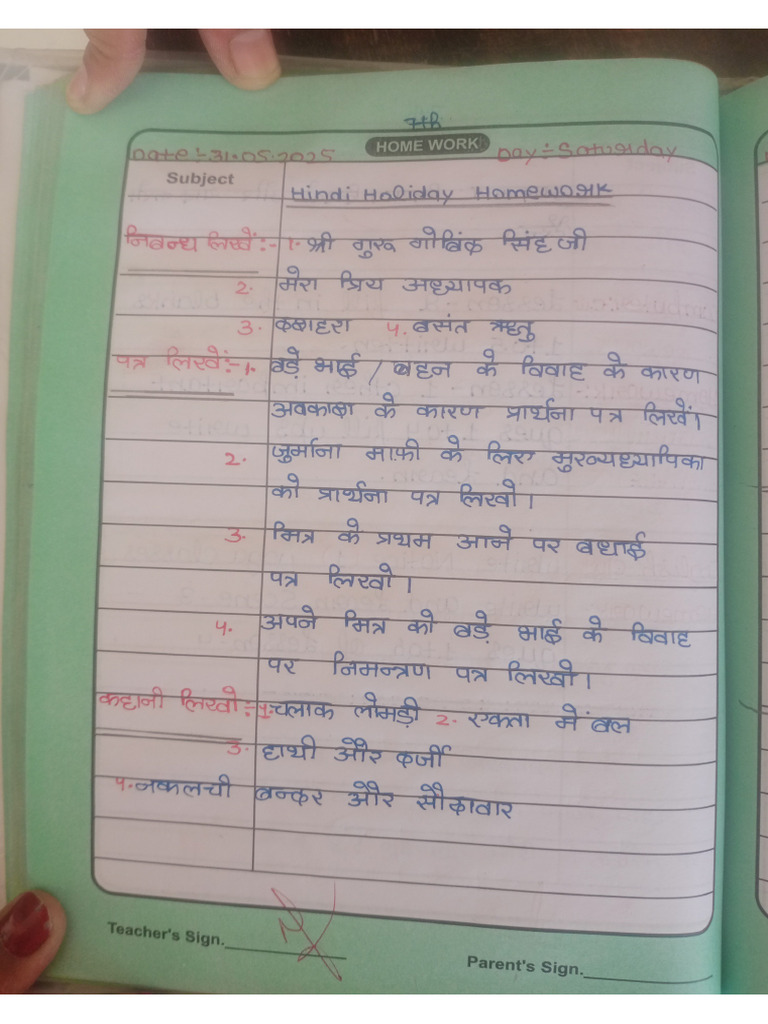 HB
HOME WORK
Date:-31.05.2025 Day:-Saturday
Subject
Hindi Holiday Homework
निबन्ध लिखें:- 1. श्री गुरू गोबिंद सिंह जी
2. मेरा प्रिय अध्यापक
3. दशहरा 4. बसंत ऋतु
पत्र लिखें:-1. बड़े भाई / बहन के विवाह के कारण
अवकाश के कारण प्रार्थना पत्र लिखें।
2. जुर्माना माफ़ी के लिए मुख्यध्यापिका
को प्रार्थना पत्र लिखो।
3. मित्र के प्रथम आने पर बधाई
पत्र लिखो।
4. अपने मित्र को बड़े भाई के विवाह
पर निमन्त्रण पत्र लिखो।
कहानी लिखो:-1. चलाक लोमड़ी 2. एकता में बल
3. हाथी और दर्जी
4. नकलची बन्दर और सौदावार
Teacher's Sign.
Parent's Sign.